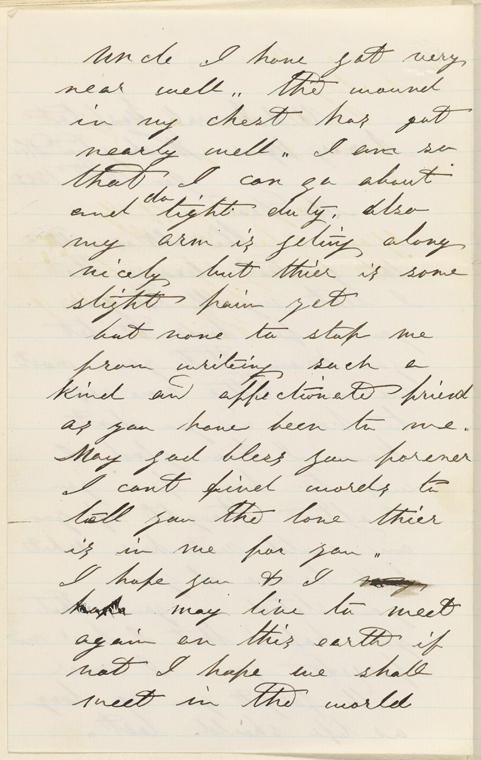 Uncle I have got very
near well,, the wound
in my chest has got
nearly well,, I am so
that I can go about
and do light duty. Also
my arm is geting along
nicely but thier is some
slight pain yet
but none to stop me
from writing such a
kind and affectionate friend
as you have been to me.
May god bless you forever
I cant find words to
tell you the love thier
is in me for you ,,
I hope you & I
may live to meet
again on this earth if
not I hope we shall
meet in the world